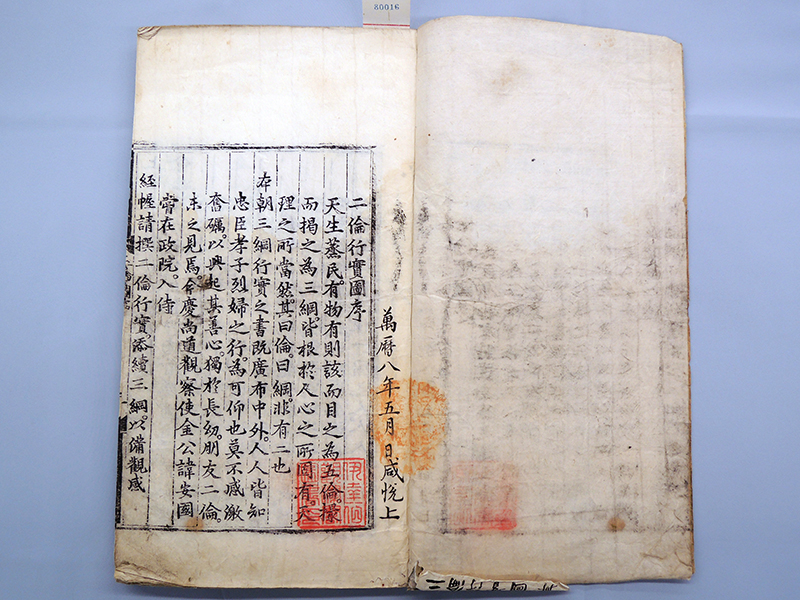 80016
萬曆八年五月 日咸悅上
二倫行實圖序
天生蒸民。有物有則該而目之為五倫。撮
而揭之為三綱。皆根於人心之所固有。天
理之所當然。其曰倫。曰綱。非有二也
本朝三綱行實之書既廣布中外。人人皆知
忠臣孝子烈婦之行。為可仰也莫不感激
奮礪。以興起其善心。獨於長幼。朋友二倫。
未之見焉。今慶尚道觀察使金公諱安國
嘗在政院。入侍
經幄請撰二倫行實添續三綱。以備觀感
伊達伯